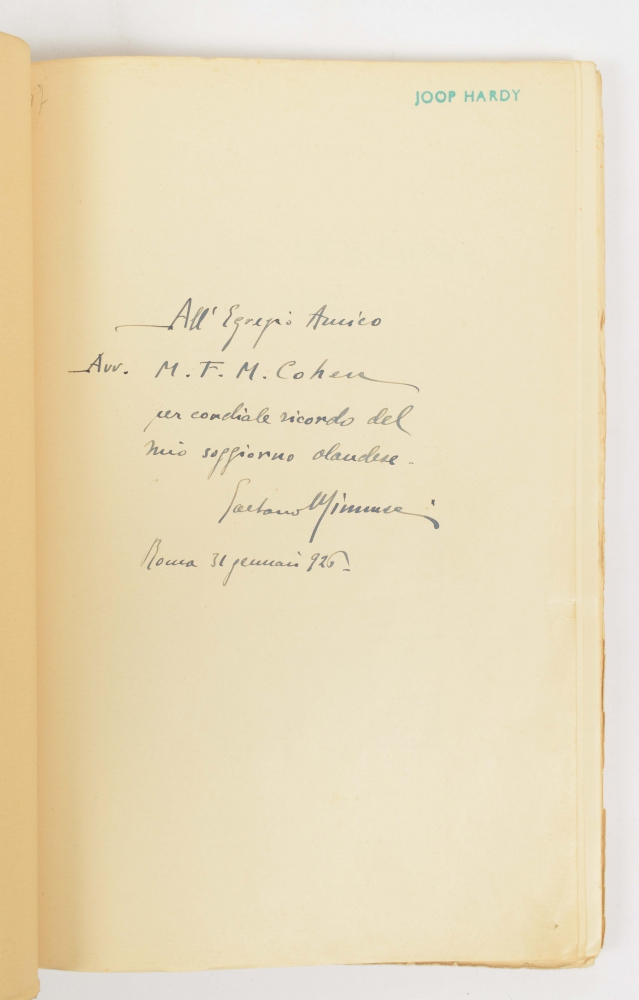 JOOP HARDY
All' Egregio Amico
Avv. M. F. M. Cohen
per cordiale ricordo del
mio soggiorno olandese.
Gaetano
Roma 31 gennaio 926